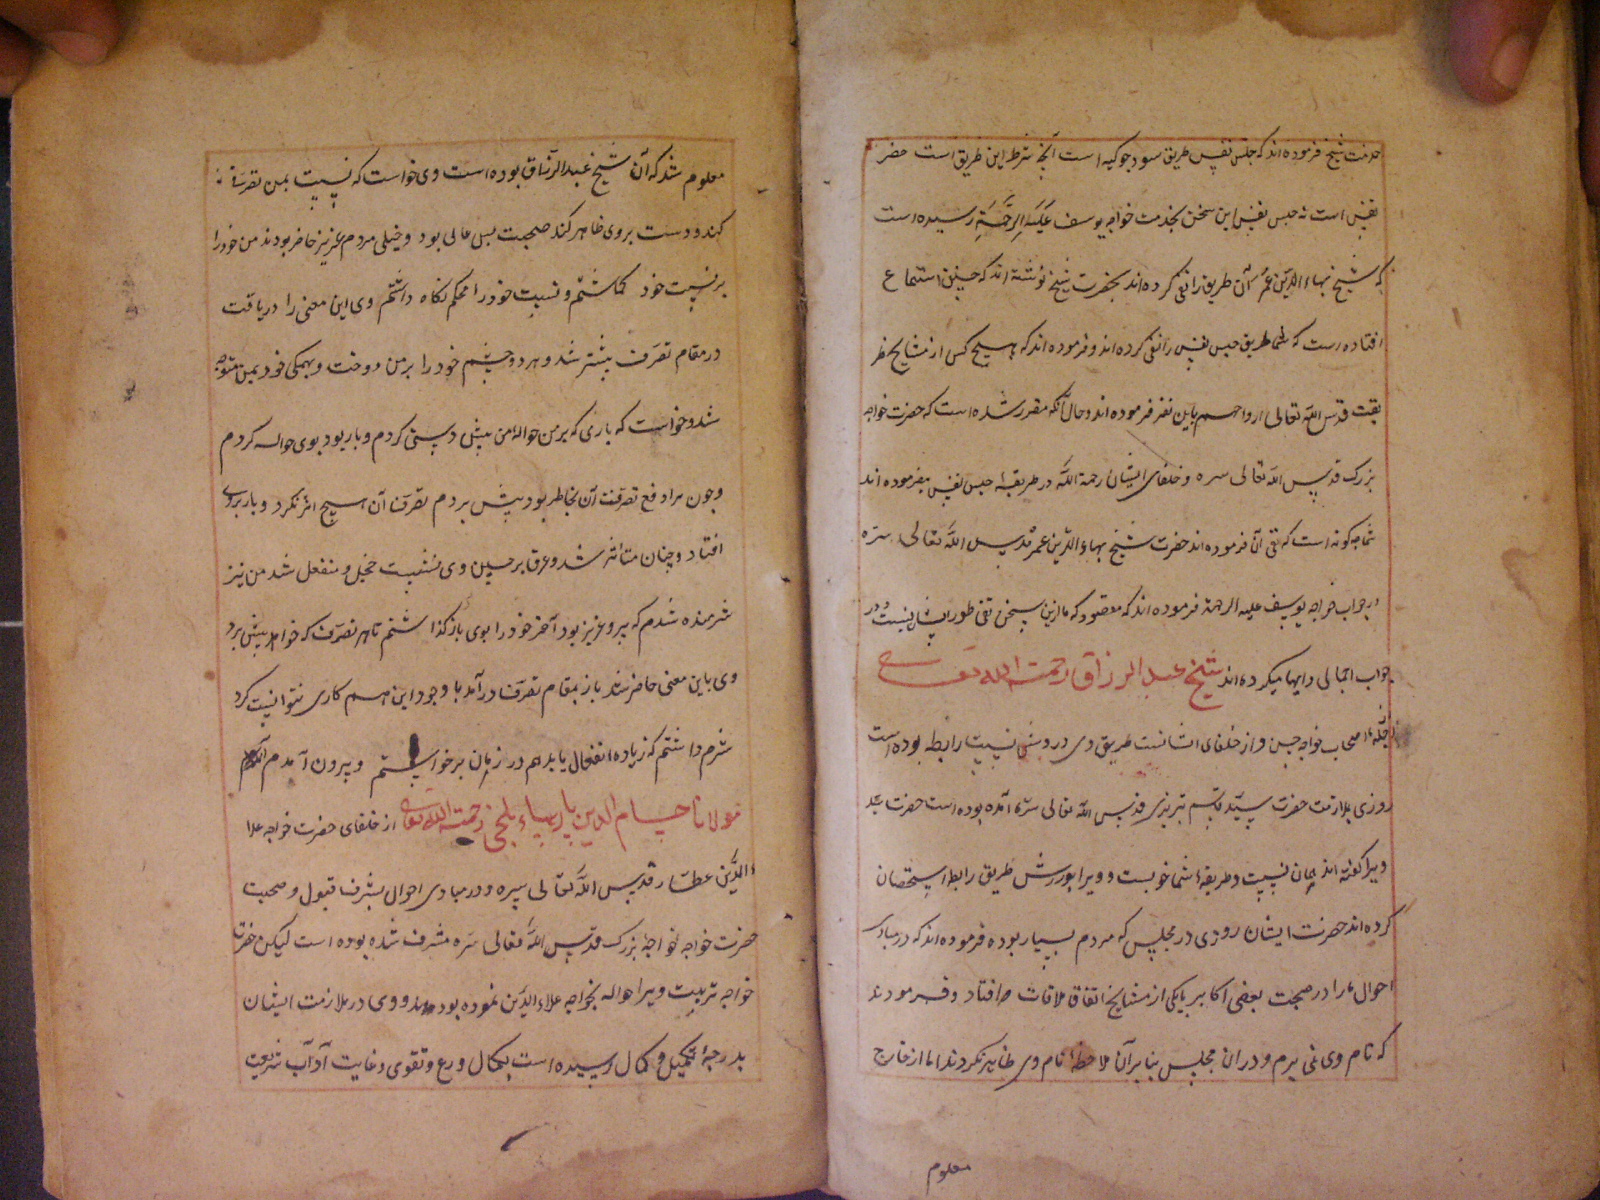 خدمت شیخ فرموده اند که حبس نفس طریق سود جوکیه است آنچه شرط این طریق است حضر
نفس است نه حبس نفس این سخن بخدمت خواجه یوسف علیه الرحمة رسیده است
که شیخ بهاء الدین عمر آن طریق را نفی کرده اند بحضرت شیخ نوشته اند که چنین استماع
افتاده است که شما طریق حبس نفس را نفی کرده اند و فرموده اند که هیچ کس از مشایخ طر
یقت قدس الله تعالی ارواحهم باین نفز فرموده اند و حال آنکه مقرر شده است که حضرت خواجه
بزرک قدس الله تعالی سره و خلفای ایشان رحمة الله در طریقه حبس نفس میفرموده اند
شما چکونه است که نفی آن فرموده اند حضرت شیخ بهاء الدین عمر قدس الله تعالی سره
در جواب خواجه یوسف علیه الرحمة فرموده اند که مقصود که ما ازین سخن نفی طور ایشان نیست و در
جواب اجمالی و ایهام میکرده اند شیخ عبد الرزاق رحمت الله تعالی
از جمله اصحاب خواجه حسن و از خلفای ایشانست طریق وی در روش نسبت رابطه بوده است
روزی بملازمت حضرت سید قاسم تبریزی قدس الله تعالی سره آمده بوده است حضرت سید
ویرا کفته اند همان نسبت و طریقه شما خوبست و ویرا بورزش طریق رابطه استحسان
کرده اند حضرت ایشان روزی در مجلس که مردم بسیار بوده فرموده اند که در مبادی
احوال ما را در صحبت بعضی اکابر بایکی از مشایخ اتفاق ملاقات افتاد و فرمودند
که نام وی نمی برم و دران مجلس بنابر آن ملاحظه نام وی ظاهر نکردند اما از خارج
معلوم
معلوم شد که آن شیخ عبد الرزاق بوده است وی خواست که نسبت بمن تصرفی
کند و دست بروی ظاهر کند صحبت بس عالی بود و خیلی مردم عزیز حاضر بودند من خود را
بر نسبت خود کماشتم و نسبت خود را محکم نکاه داشتم وی این معنی را دریافت
در مقام تصرف بیشتر شد و هر دو چشم خود را بر من دوخت و بهمکی خود بمن متوجه
شد و خواست که باری که بر من حواله من پیش دستی کردم و بار بود بوی حواله کردم
و چون مراد فع تصرفت آن بخاطر بود پیش بردم تصرف آن هیچ اثر نکرد و بار بروی
افتاد و چنان متاثر شد و عرق بر جبین وی نشست خجل و منفعل شد من نیز
شرمنده شدم که پیر و عزیز بود آخر خود را بوی باز کذاشتم تا هر تصرف که خواهد پیش برد
وی باین معنی حاضر شد باز بمقام تصرف درآمد با وجود این هم کاری نتوانست کرد
شرم داشتم که زیاده انفعال یابد هم در زمان برخواستم و بیرون آمدم
مولانا حسام الدین پارساء بلخی رحمت الله تعالی از خلفای حضرت خواجه علا
ء الدین عطار قدس الله تعالی سره و در مبادی احوال بشرف قبول و صحبت
حضرت خواجه خواجه بزرک قدس الله تعالی سره مشرف شده بوده است لیکن حضرت
خواجه تربیت ویرا حواله بخواجه علاء الدین نموده بودند و وی در ملازمت ایشان
بدرجه تکمیل و کمال رسیده است بکمال ورع و تقوی و رعایت آداب شریعت